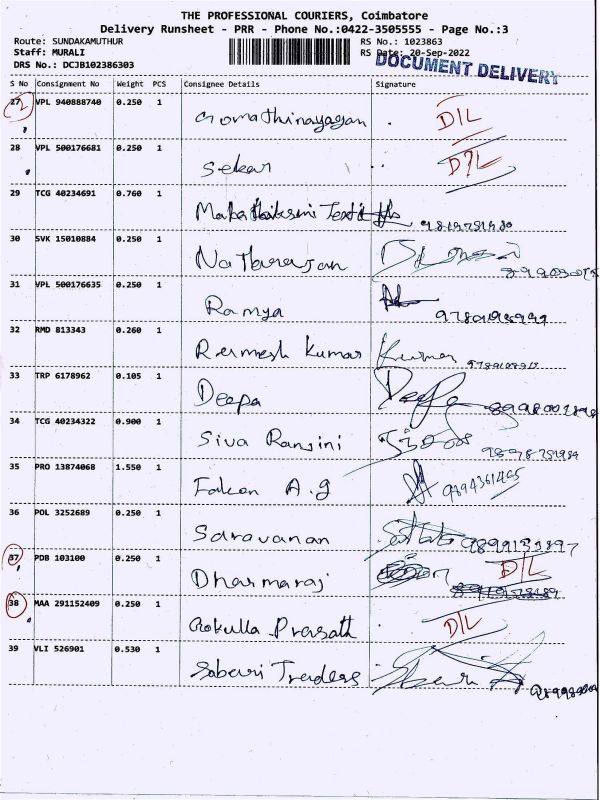 THE PROFESSIONAL COURIERS, Coimbatore
Delivery Runsheet - PRR - Phone No.:0422-3505555 - Page No.:3
Route: SUNDAKAMUTHUR RS No.: 1023863
Staff: MURALI RS Date: 20-Sep-2022
DRS No.: DCJB102386303 DOCUMENT DELIVERY
S No Consignment No Weight PCS Consignee Details Signature
27 VPL 940888740 0.250 1 Gomathinayagan D/L
28 VPL 500176681 0.250 1 Sekar D/L
29 TCG 40234691 0.760 1 Mahalaksmi
30 SVK 15010884 0.250 1 Natarajan
31 VPL 500176635 0.250 1 Ramya
32 RMD 813343 0.260 1 Kumar Kumar
33 TRP 6178962 0.105 1 Deepa Deepa
34 TCG 40234322 0.900 1 Siva Ransini
35 PRO 13874068 1.550 1 Falcon A.g 9894361465
36 POL 3252689 0.250 1 Saravanan
37 PDB 103100 0.250 1 Dharmaraj D/L
38 MAA 291152409 0.250 1 Gokulla Prasath D/L
39 VLI 526901 0.530 1 Sabari Traders